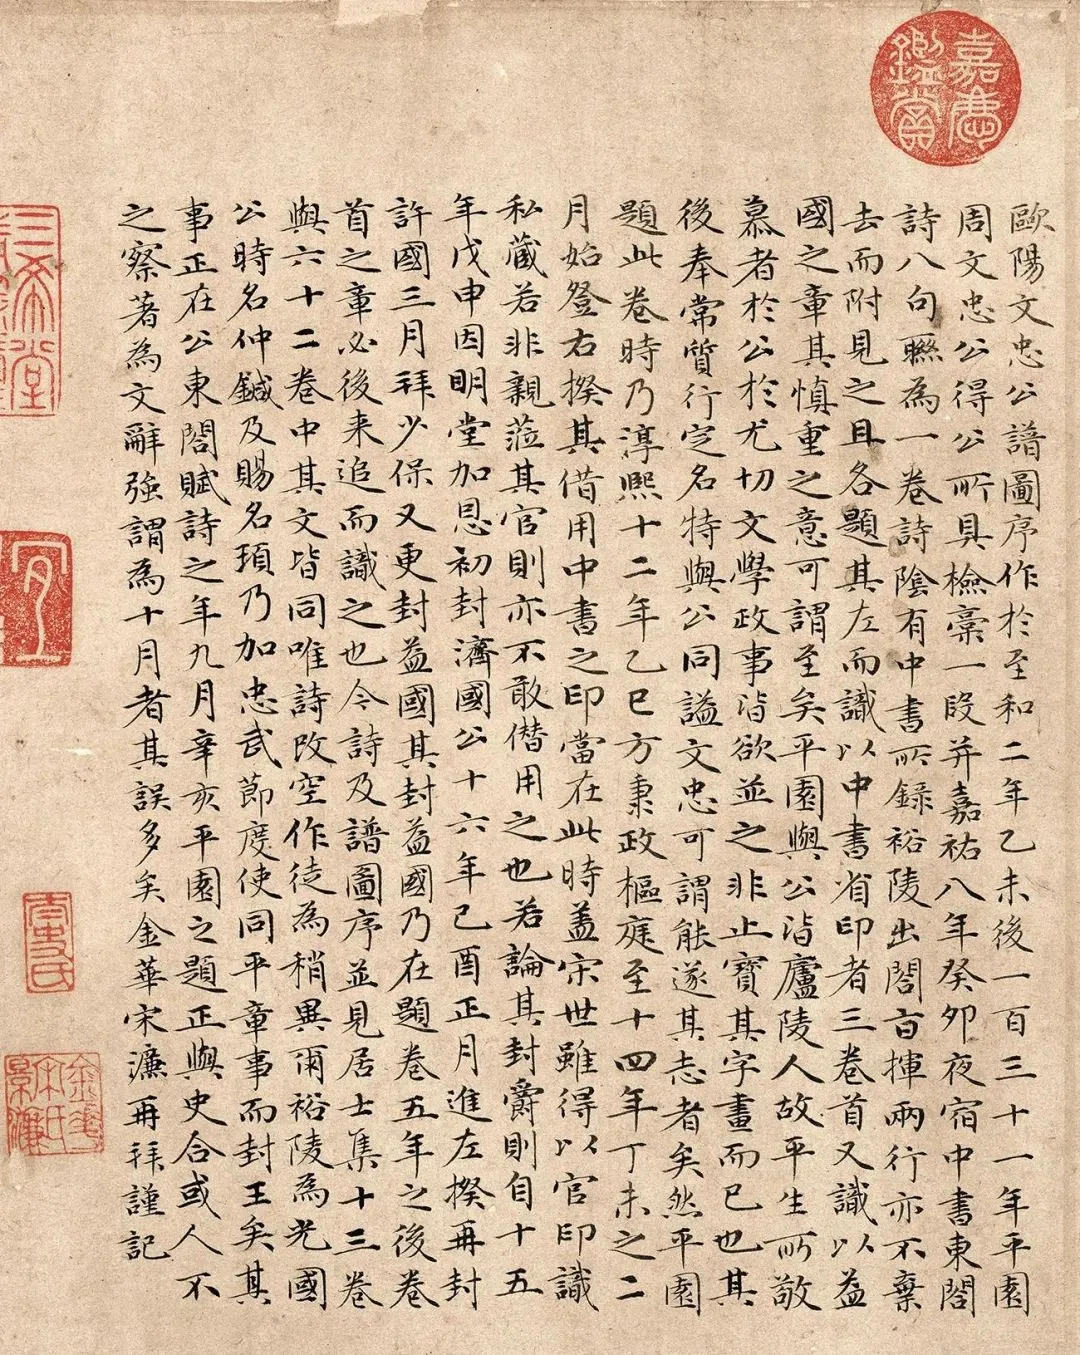 歐陽文忠公譜圖序作於至和二年乙未後一百三十一年平園
周文忠公得公所具檢稾一段并嘉祐八年癸卯夜宿中書東閤
詩八句聮為一卷詩陰有中書所録裕陵出閤百揮兩行亦不棄
去而附見之且各題其左而識以中書省印者三卷首又識以益
國之章其慎重之意可謂至矣平園與公皆廬陵人故平生所敬
慕者於公於尤切文學政事皆欲並之非止寶其字畫而已也其
後奉常質行定名特與公同謚文忠可謂能遂其志者矣然平園
題此卷時乃淳熙十二年乙巳方秉政樞庭至十四年丁未之二
月始登右揆其借用中書之印當在此時蓋宋世雖得以官印識
私藏若非親蒞其官則亦不敢僭用之也若論其封爵則自十五
年戊申因明堂加恩初封濟國公十六年己酉正月進左揆再封
許國三月拜少保又更封益國其封益國乃在題卷五年之後卷
首之章必後来追而識之也今詩及譜圖序並見居士集十三卷
與六十二卷中其文皆同唯詩改空作徒為稍異爾裕陵為光國
公時名仲鍼及賜名頊乃加忠武節度使同平章事而封王矣其
事正在公東閤賦詩之年九月辛亥平園之題正與史合或人不
之察著為文辭強謂為十月者其誤多矣金華宋濂再拜謹記
嘉慶鑑賞
三希堂
宜
金華宋氏景濂